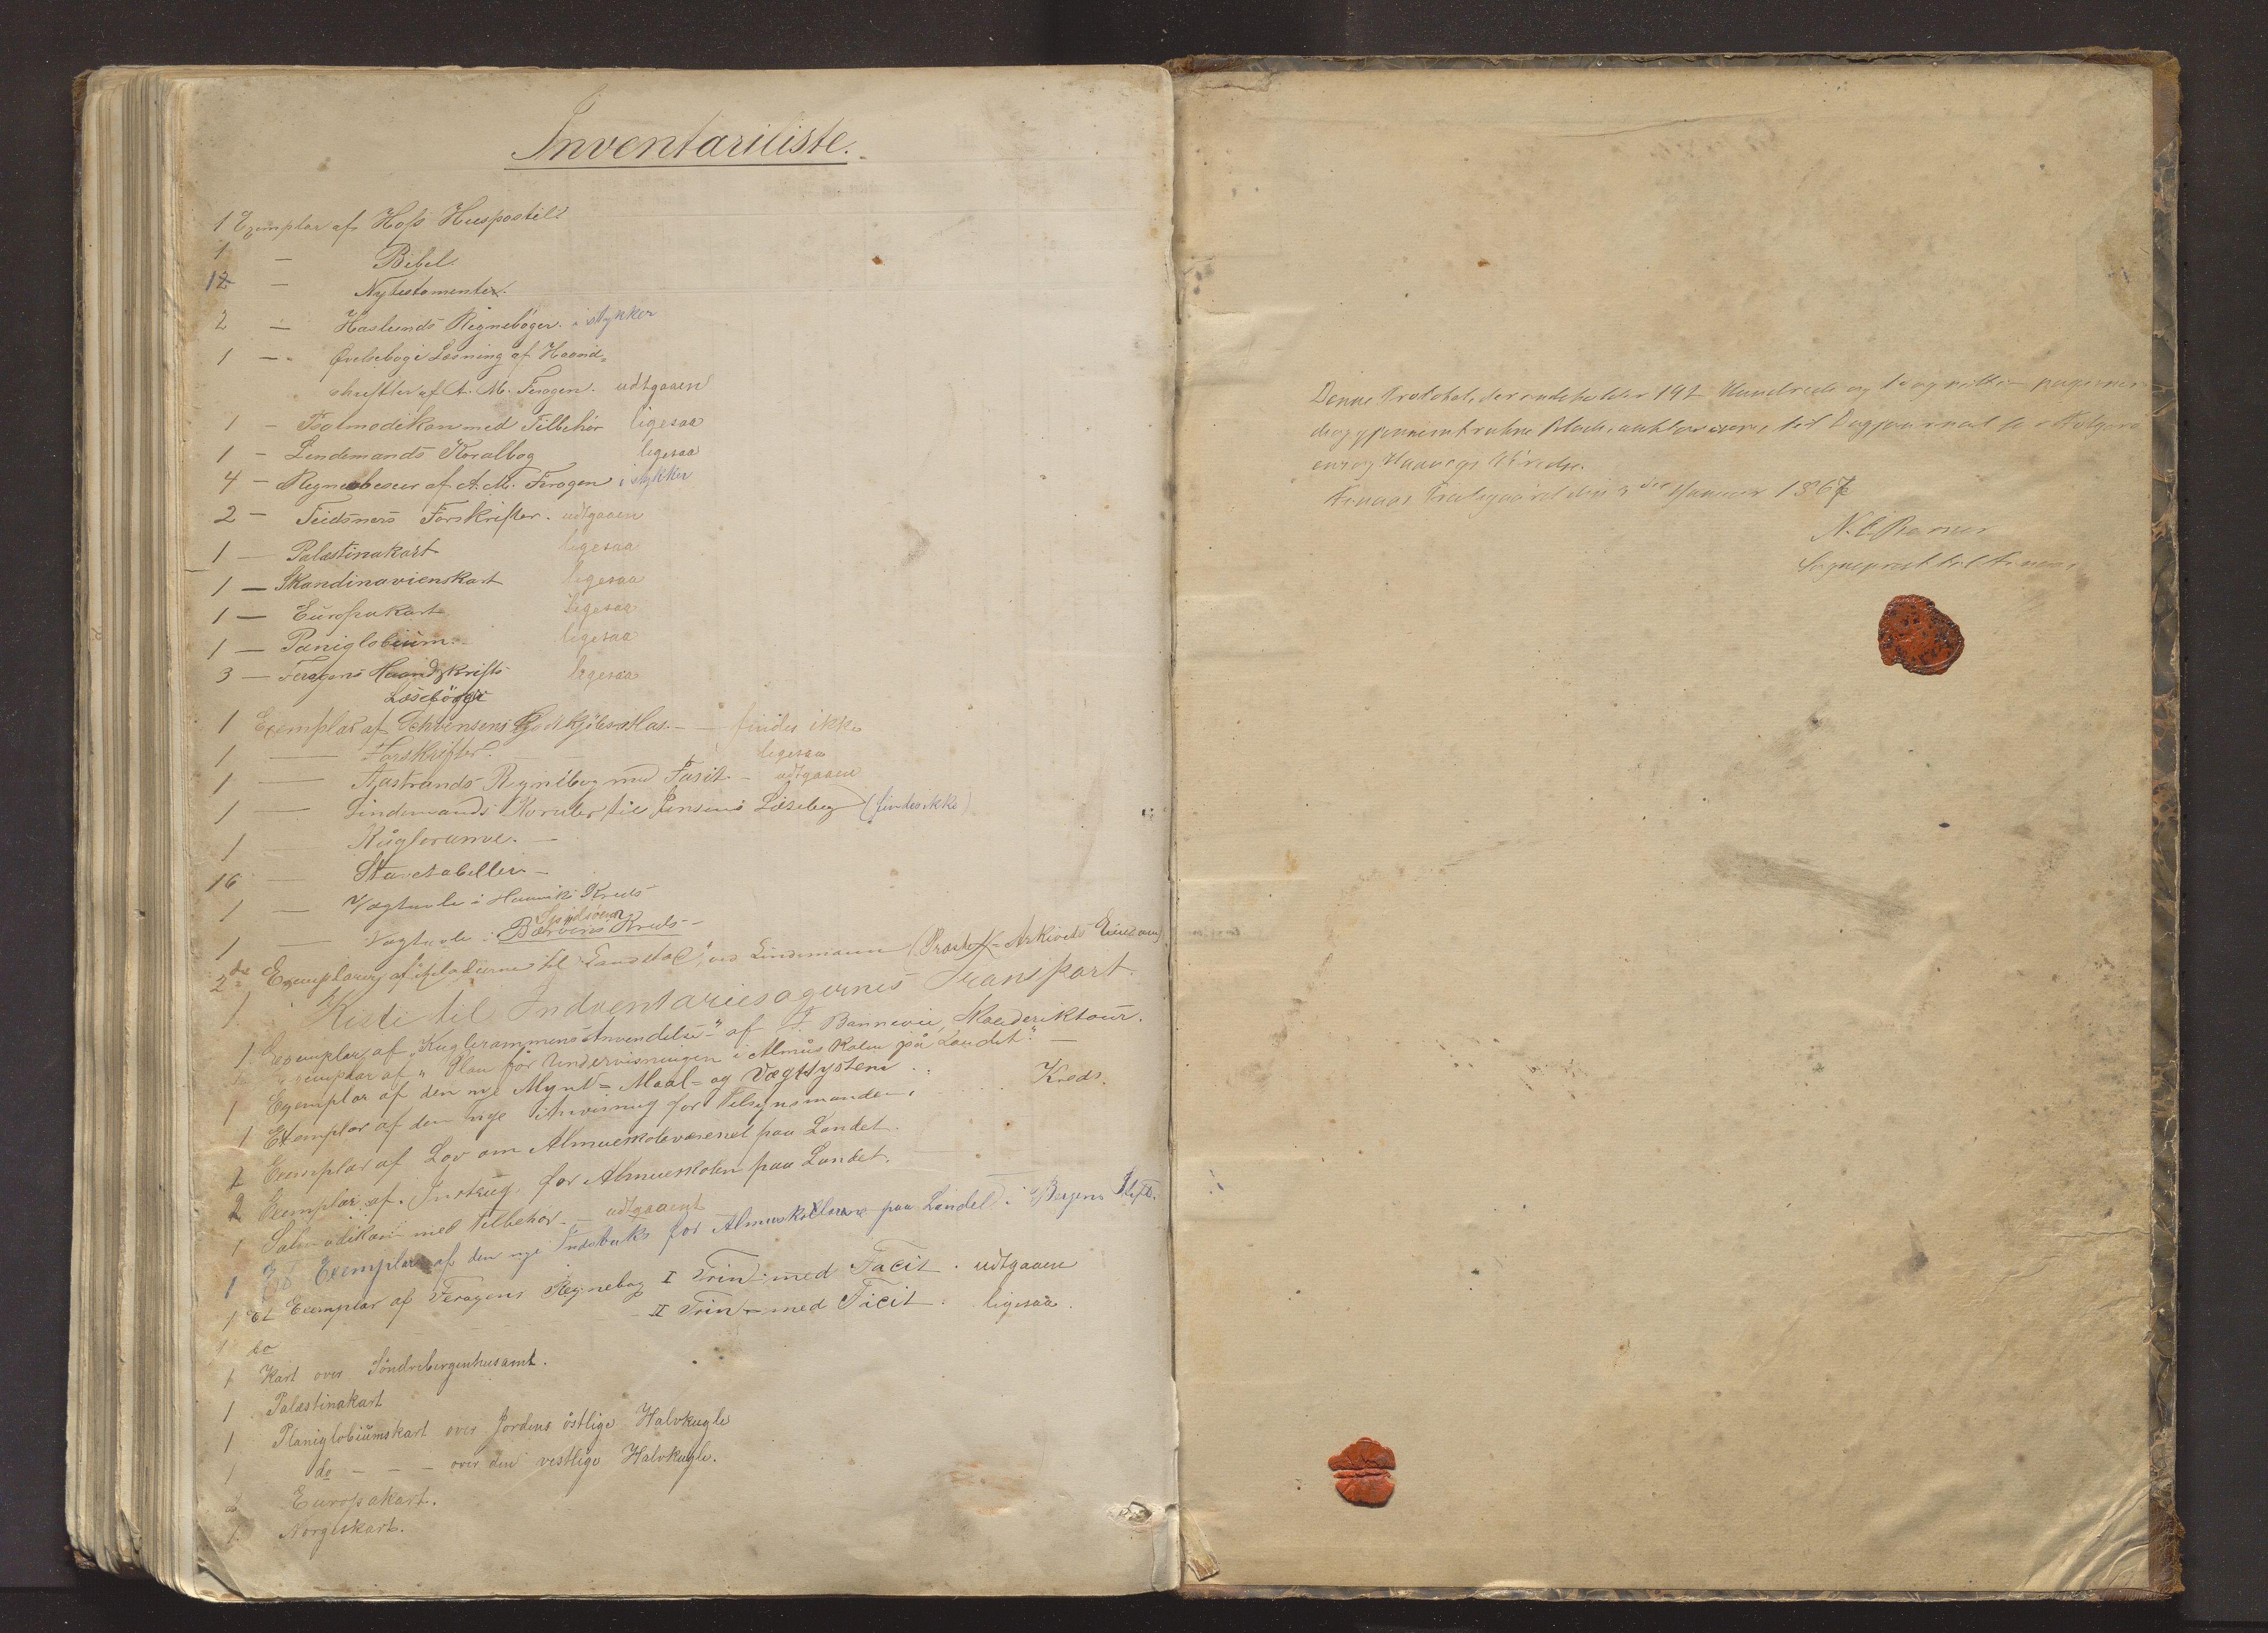 Inventariliste.
1 Exemplar af Hofs Huspostill
1 — Bibel.
12 — Nytestamenter.
2 — Haslunds Regnebøger. i stykker
1 — Øvelsebog i Læsning af Haand=
skrifter af A. M. Feragen. udtgaaen
1 — Psalmodikan med Tilbehör ligesaa
1 — Lindemands Koralbog ligesaa
4 — Regne af A. M. Feragen i stykker
2 — Forskrifter. udtgaaen
1 — Palæstinakart ligesaa
1 — Skandinavienskart ligesaa
1 — Europakart ligesaa
1 — Paniglobium. ligesaa
3 — Feragens Haandskrifts ligesaa
Læsebøger
1 Exemplar af — findes ikke
1 — Forskrifter. ligesaa
1 — Aastrands Rgnebog med Fasit — udtgaaen
1 — Lindemands Koraler til Jensens Læsebog (findes ikke)
1 — Kugleramme. —
16 — Stavetabeller —
1 — Vægtavle i Kreds
1 — Vægtavle i Bærøens Kreds —
2de Exemplarer af Melodierne til Landstad, ved Lindemann (Præste-Arkivets Eiendom)
1 Kiste til Indventariesagernes Transport.
1 Exemplar af "Kuglerammens Anvendelse" af
1 Exemplar af "Plan for Undervisningen i Almuskolen på Landet." —
1 Exemplar af den nye Mynt= Maal= og Vægtsystem . . Kreds.
1 Exemplar af den nye for Tilsynsmanden.
2 Exemplar af Lov om Almueskolevæsenet paa Landet.
2 Exemplar af Instrug. for Almueskolen paa Landet.
1 Salmodikan med tilbehør — udtgaaent
1 Et Exemplar af den nye for Almueskolerne paa Landet i Bergens Stift.
1 Et Exemplar af Feragens Regnebog I Trin med Facit. udtgaaen
1 do — II Trin med Facit. ligesaa.
1 Kart over Söndrebergenhusamt.
1 Palæstinakart
1 Planiglobiumskart over Jordens östlige Halvkugle
1 do — — — over den vestlige Halvkugle.
1 Europakart.
1 Norgeskart.
Denne Protokol, der indeholder 192 Hundrede og to og nitti paginerede
og gjennemtrukne Blade, authoriseres til Dagjournal for
og Kredse.
den 3die Januar 1867
N. E.
Sogneprest til